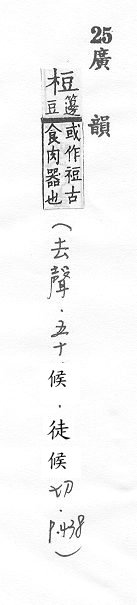 25廣韻
梪豆籩
或作䇺古
食肉器也
(去聲.五十候.徒候切.P.438)